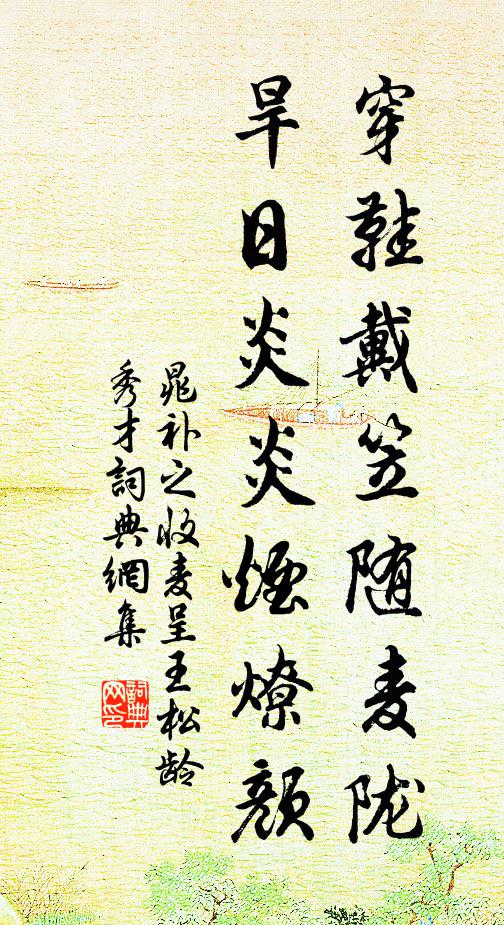 穿鞋戴笠随麦陇
旱日炎炎烟燎颜
晁补之收麦呈王松龄
秀才詞典網集
詞典
网印